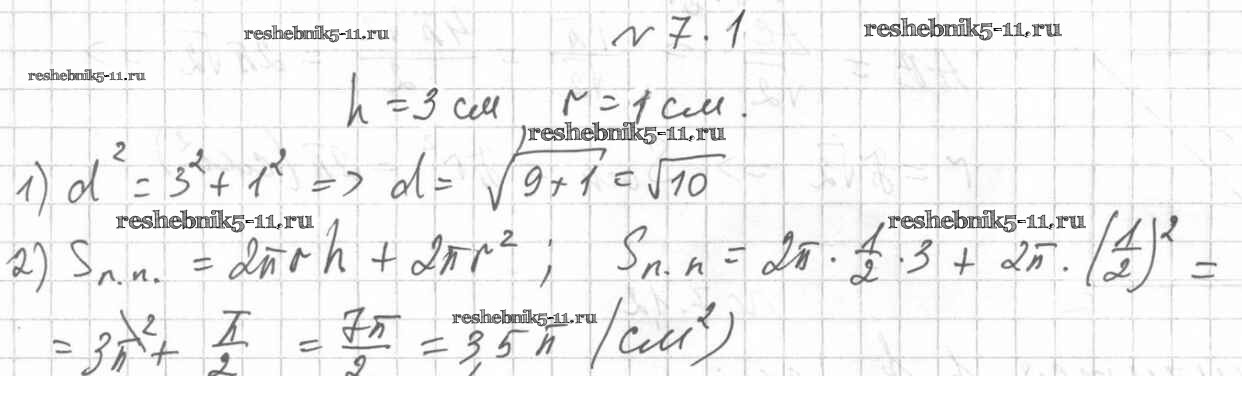 reshebnik5-11.ru
№ 7.1
reshebnik5-11.ru
reshebnik5-11.ru
h = 3 см r = 1 см.
reshebnik5-11.ru
1) d² = 3² + 1² => d = √(9+1) = √10
reshebnik5-11.ru
reshebnik5-11.ru
2) Sп.п. = 2πrh + 2πr² ; Sп.п = 2π · 1/2 · 3 + 2π · (1/2)² =
reshebnik5-11.ru
= 3π + π/2 = 7π/2 = 3,5π (см²)